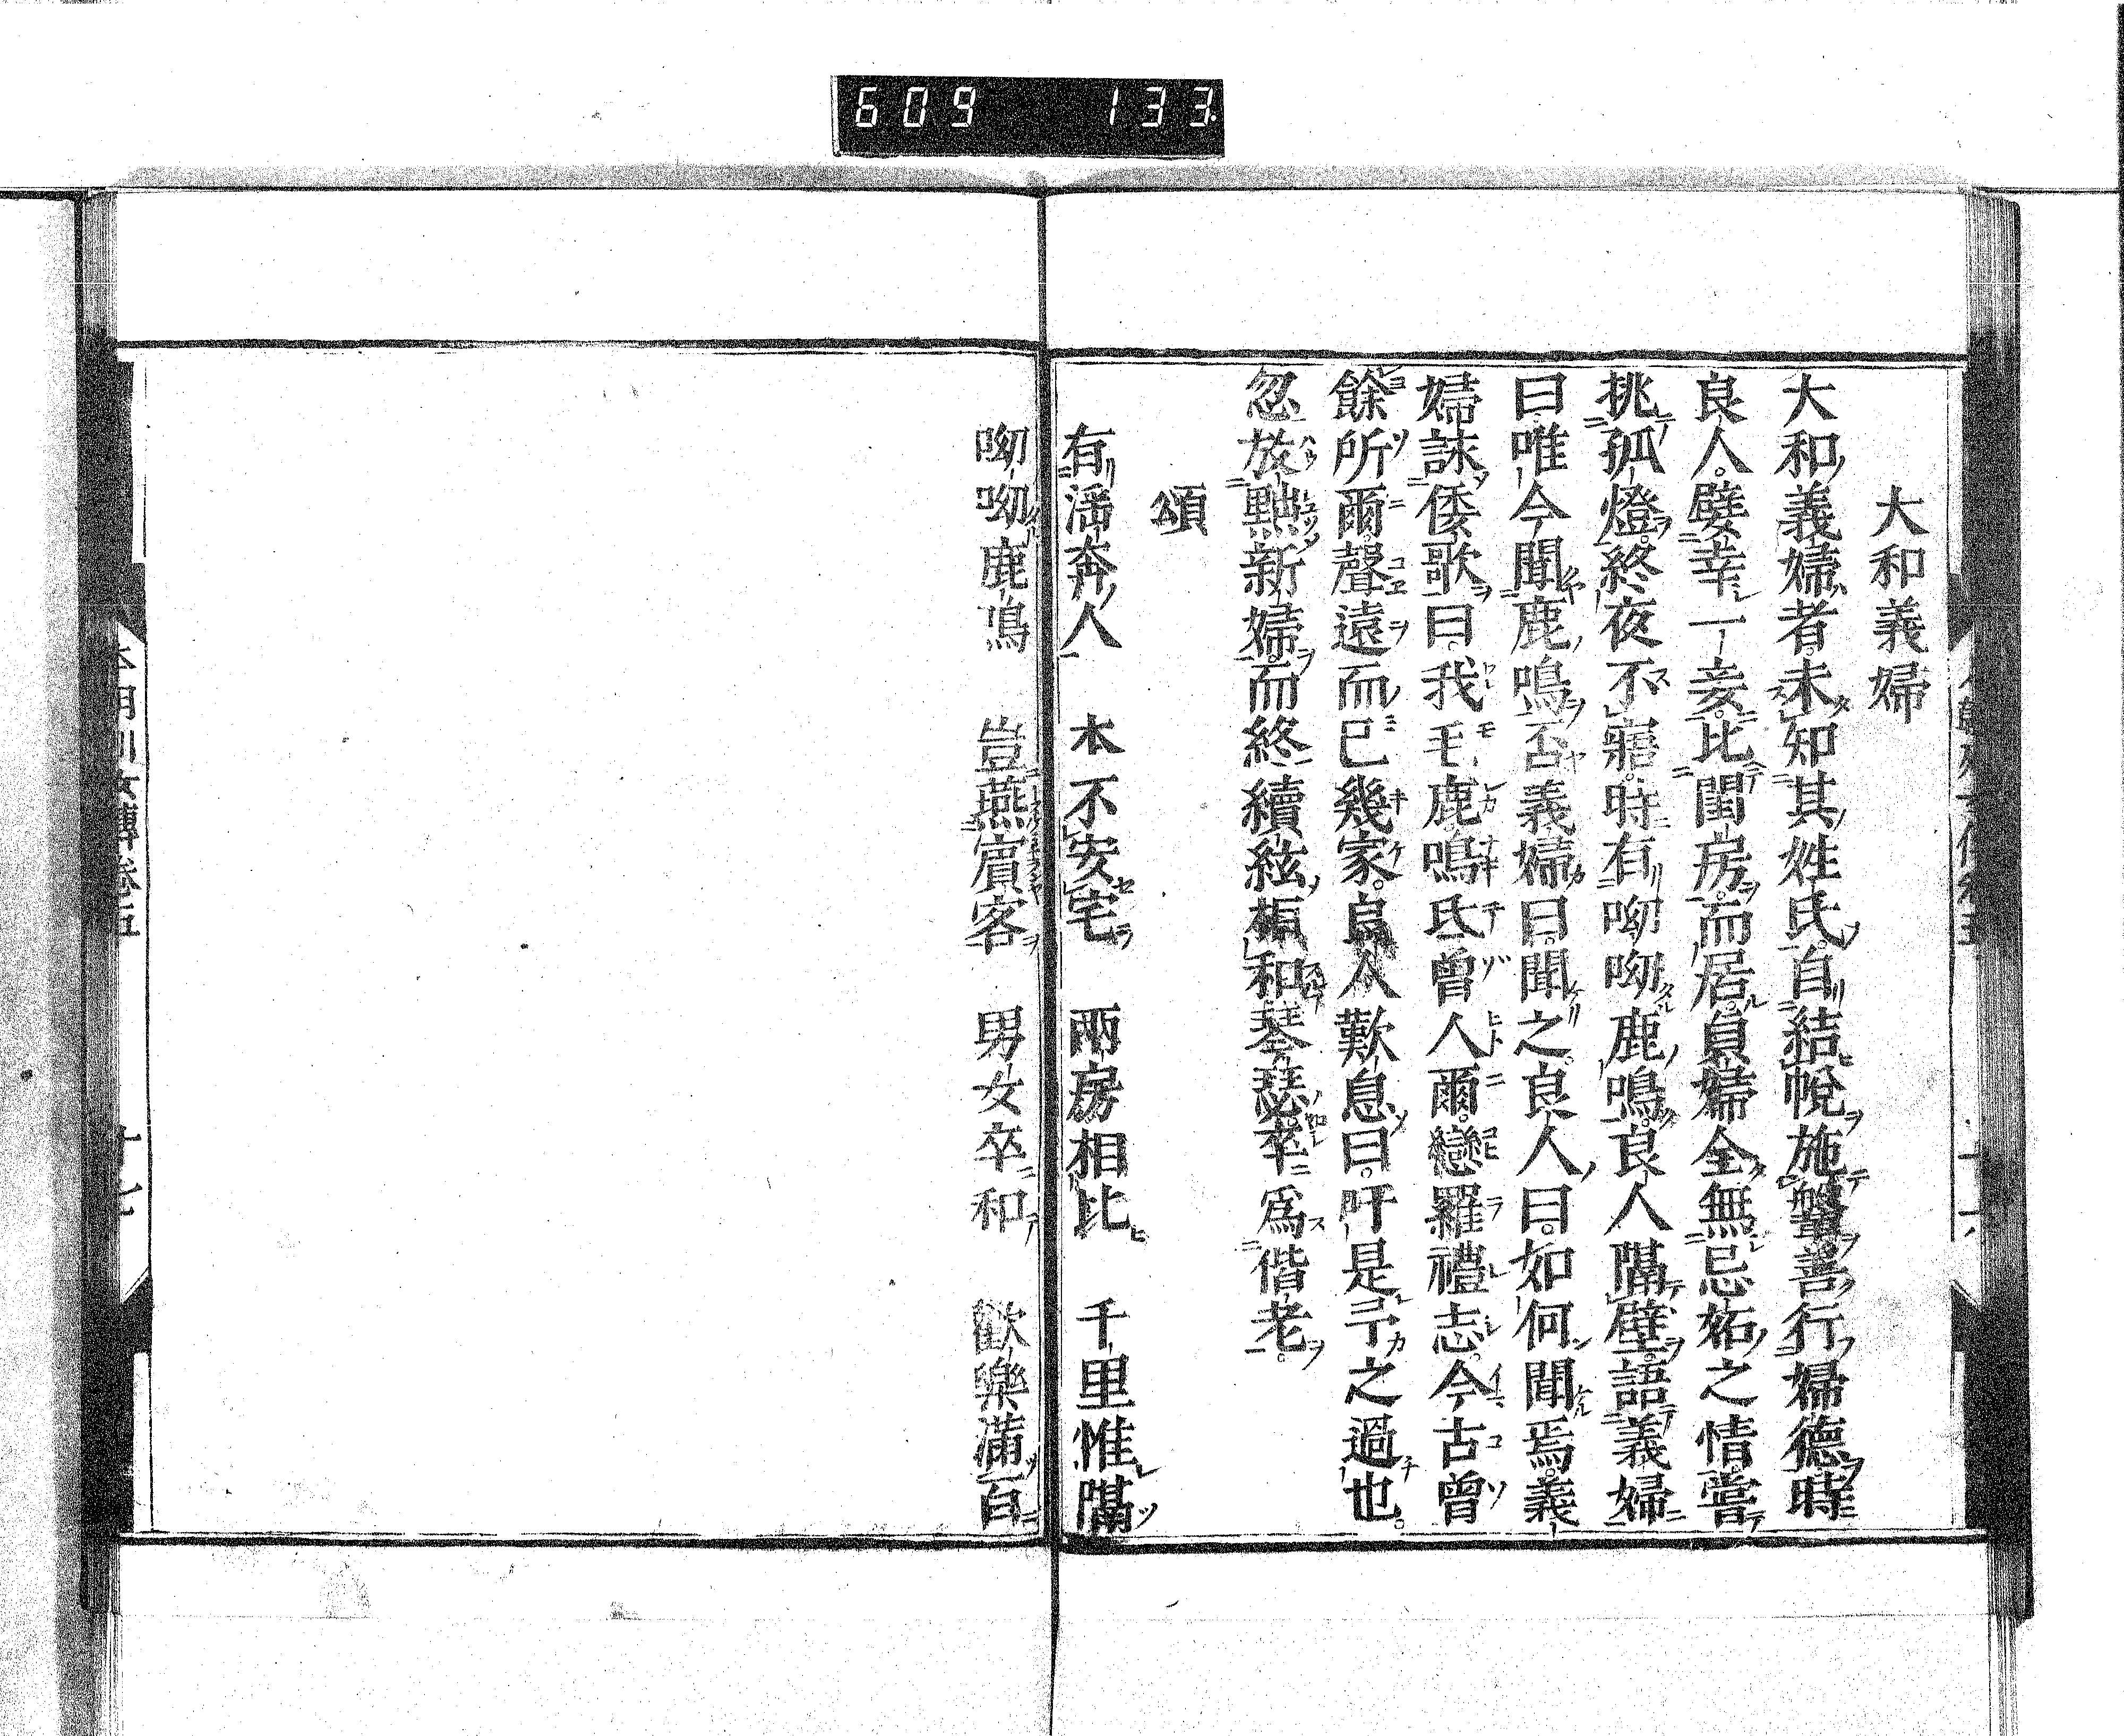 609 133
大和義婦
大和義婦者。未知其姓氏。自結帨施鞶。善行婦德。時
良人。嬖幸一妾。比閨房而居。貞婦全無忌妬之情。嘗
挑孤燈。終夜不寤。時有呦呦鹿鳴。良人隔壁。語義婦
曰唯今聞鹿鳴否義婦曰。聞之。良人曰。如何聞焉。義
婦詠倭歌曰。我毛鹿鳴氏曾人爾。戀羅禮志。今古曾
餘所爾聲遠而已幾家。良人歎息曰。吁是予之過也。
忽放黜新婦。而終續絃柜和琴瑟。卒爲偕老。
頌
有淫奔人 本不安宅 兩房相比 千里惟隔
呦呦鹿鳴 豈燕賓客 男女卒和 歡樂滿百
本朝列女傳卷五 十六
本朝列女傳卷五 十七